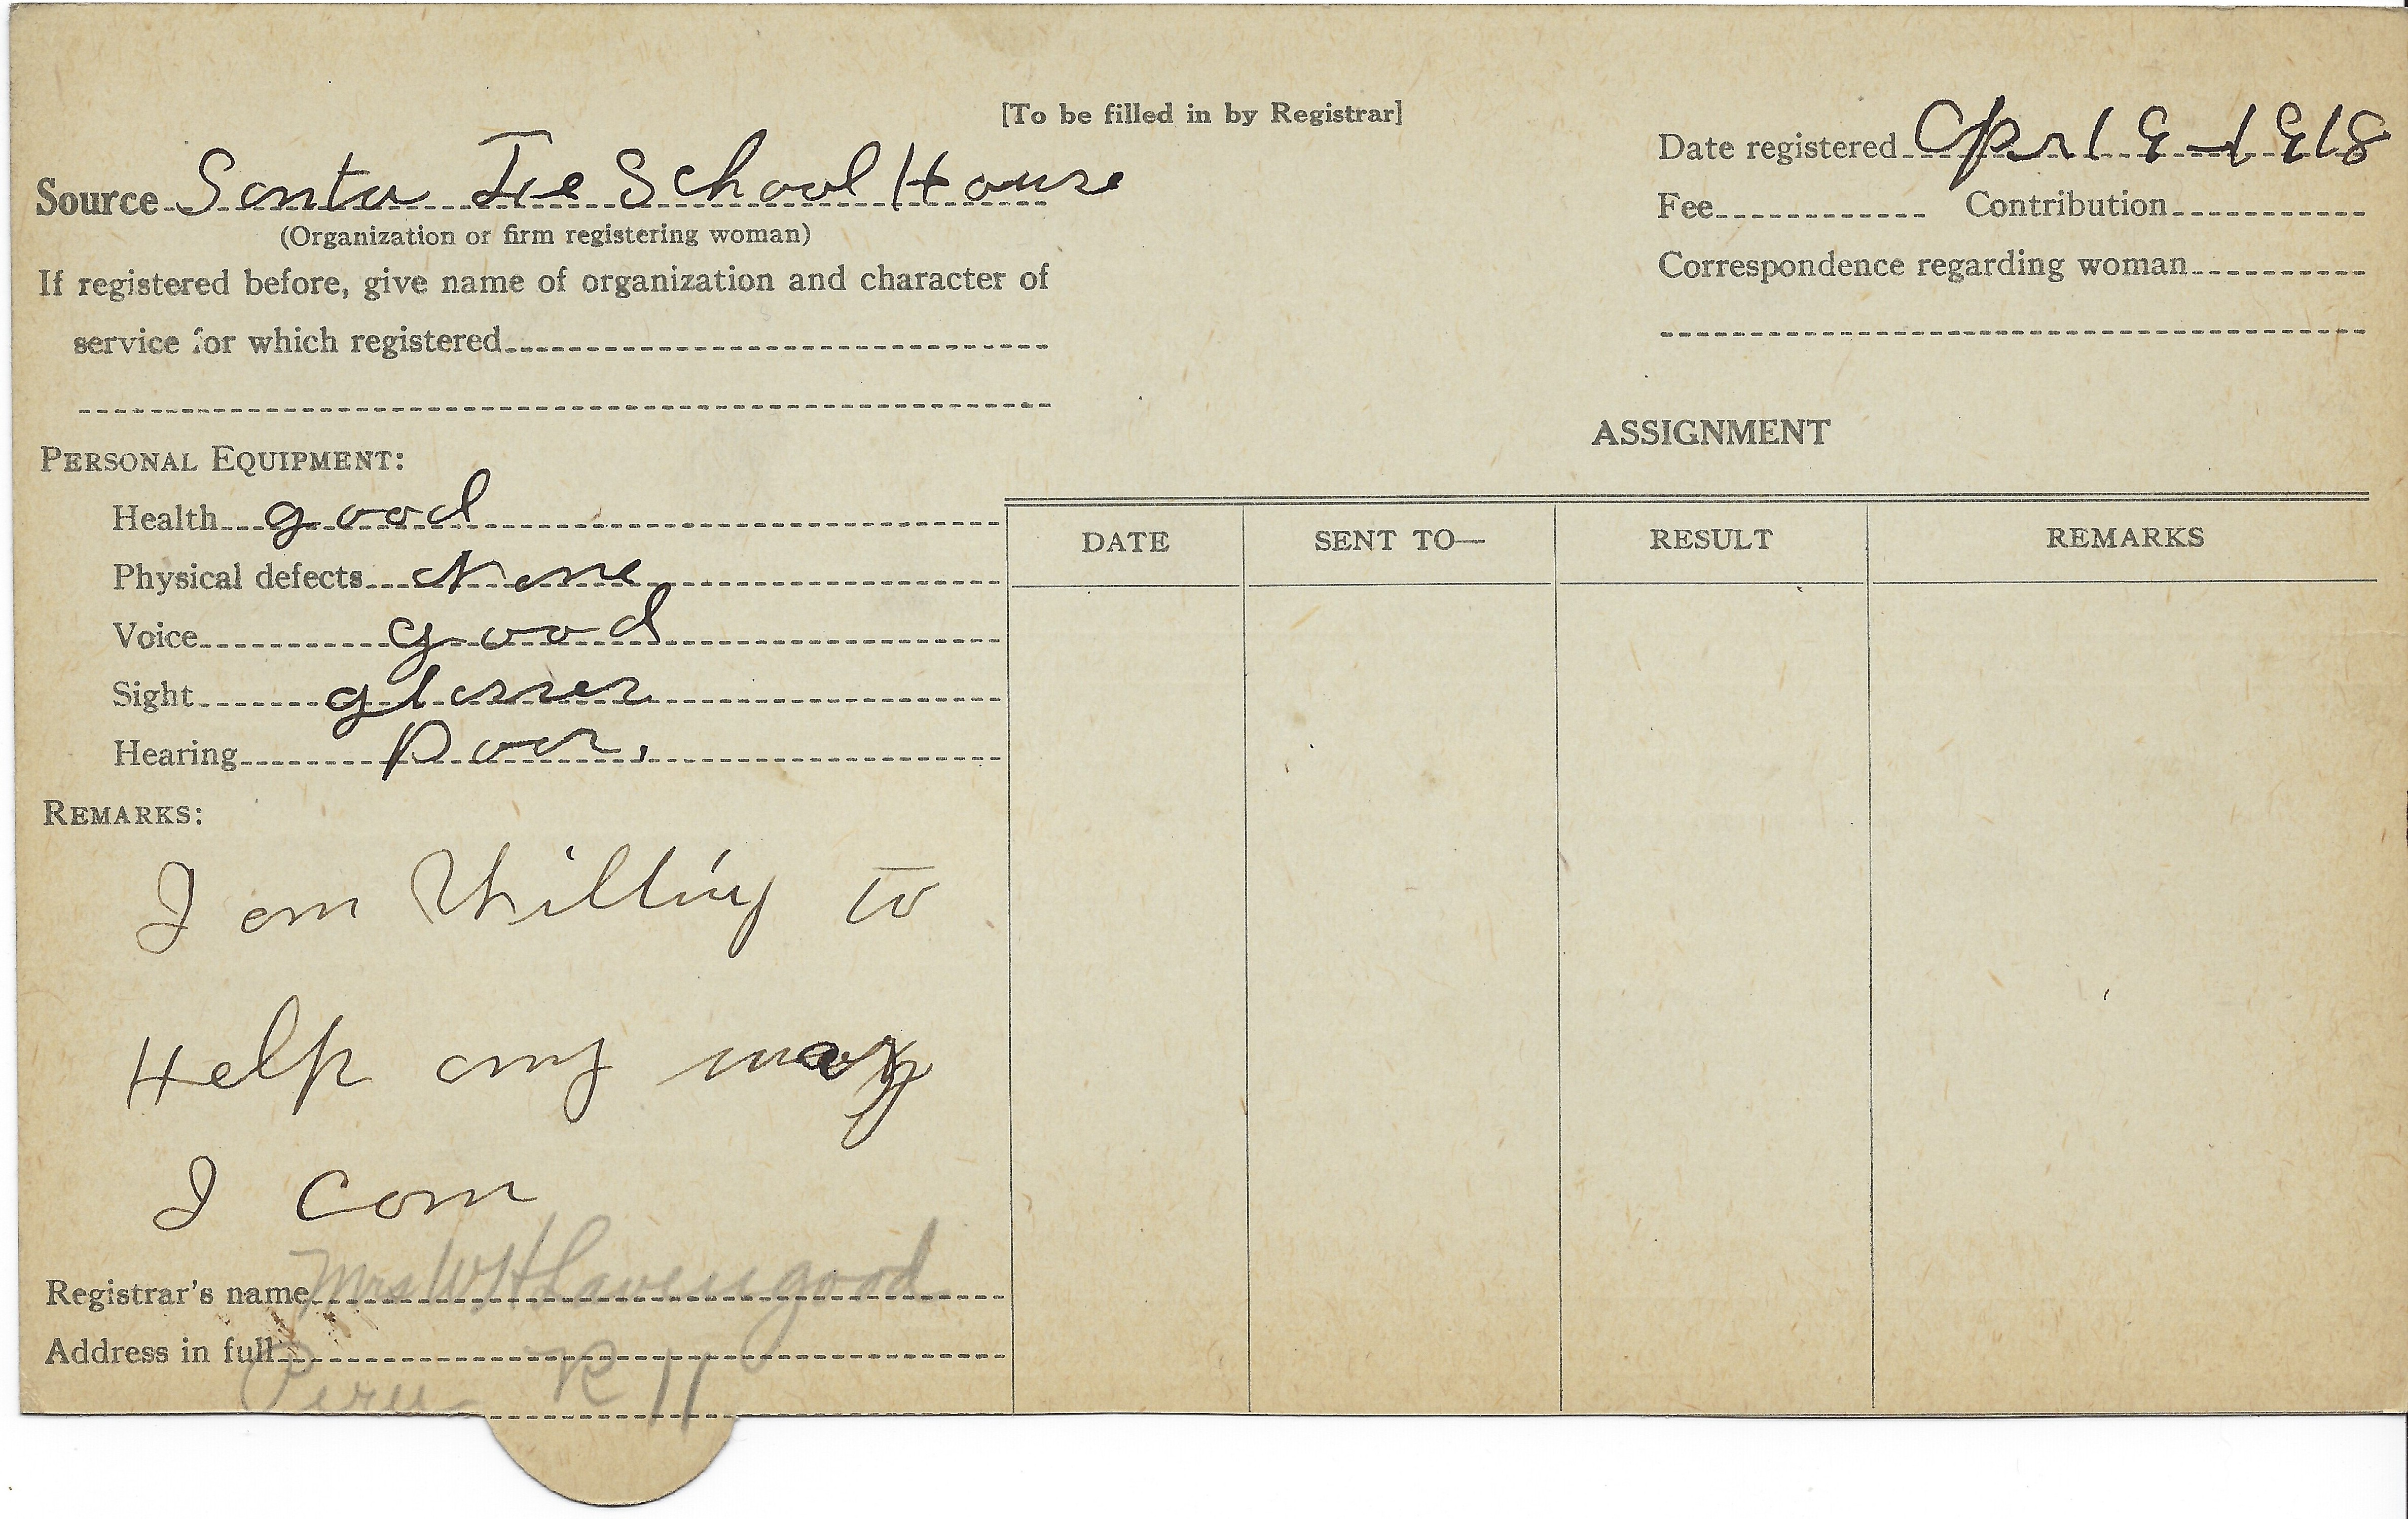 [To be filled in by Registrar]
Source Santa Fe School House
(Organization or firm registering woman)
If registered before, give name of organization and character of
service for which registered
Date registered Aprl 9 - 1918
Fee Contribution
Correspondence regarding woman
PERSONAL EQUIPMENT:
Health good
Physical defects None
Voice good
Sight glasses
Hearing Poor.
REMARKS:
I am Willing to
Help any way
I Can
Registrar's name Mrs W H Lavengood
Address in full
Peru R 11
ASSIGNMENT
DATE SENT TO— RESULT REMARKS